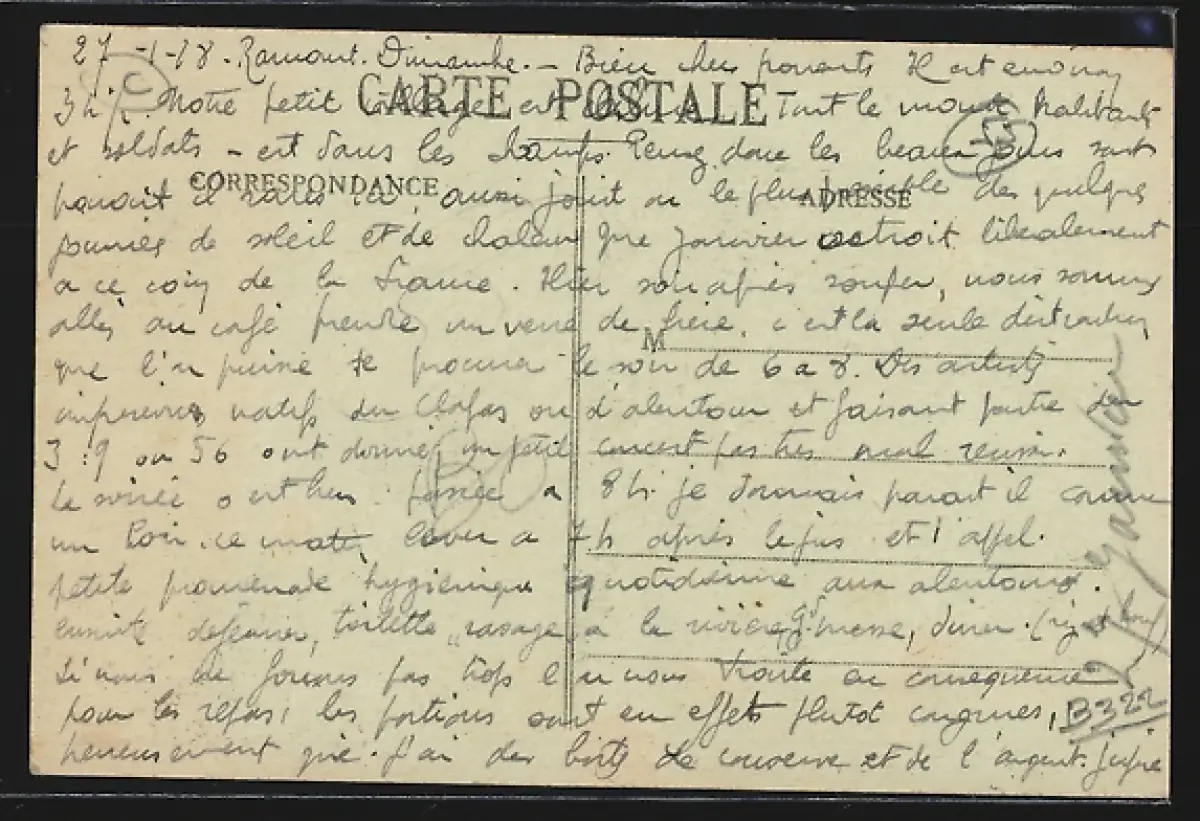 27-1-18. Ramont. Dimanche. - Bien chers parents Il est environ
CARTE POSTALE
3h. Notre petit village est Tout le monde habitants
et soldats - est dans les champs. donc les beaux jours sont
CORRESPONDANCE ADRESSE
parait il rares ici, aussi jouit on le plus possible des quelques
journées de soleil et de chaleur que janvier octroit liberalement
a ce coin de la France. Hier soir après souper, nous sommes
allés au café prendre un verre de bière, c'est la seule distraction
M
que l'on puisse se procurer le soir de 6 a 8. Des artistes
natifs du ou d'alentour et faisant partie du
3:9 ou 56 ont donné un petit concert pas tres mal reussi.
la soirée passée a 8h. je dormais parait il comme
un Loir. ce matin, lever a 7h après le jus et l'appel.
petite promenade hygiénique quotidienne aux alentours.
ensuite déjeuner, toilette, rasage, a la rivière, Gd messe, diner.
Janvier
de fournis pas trop l'on nous traite en consequence
pour les repas, les portions sont en effets plutot congrues,
B322
heureusement que j'ai des boits de conserve et de l'argent. jusque